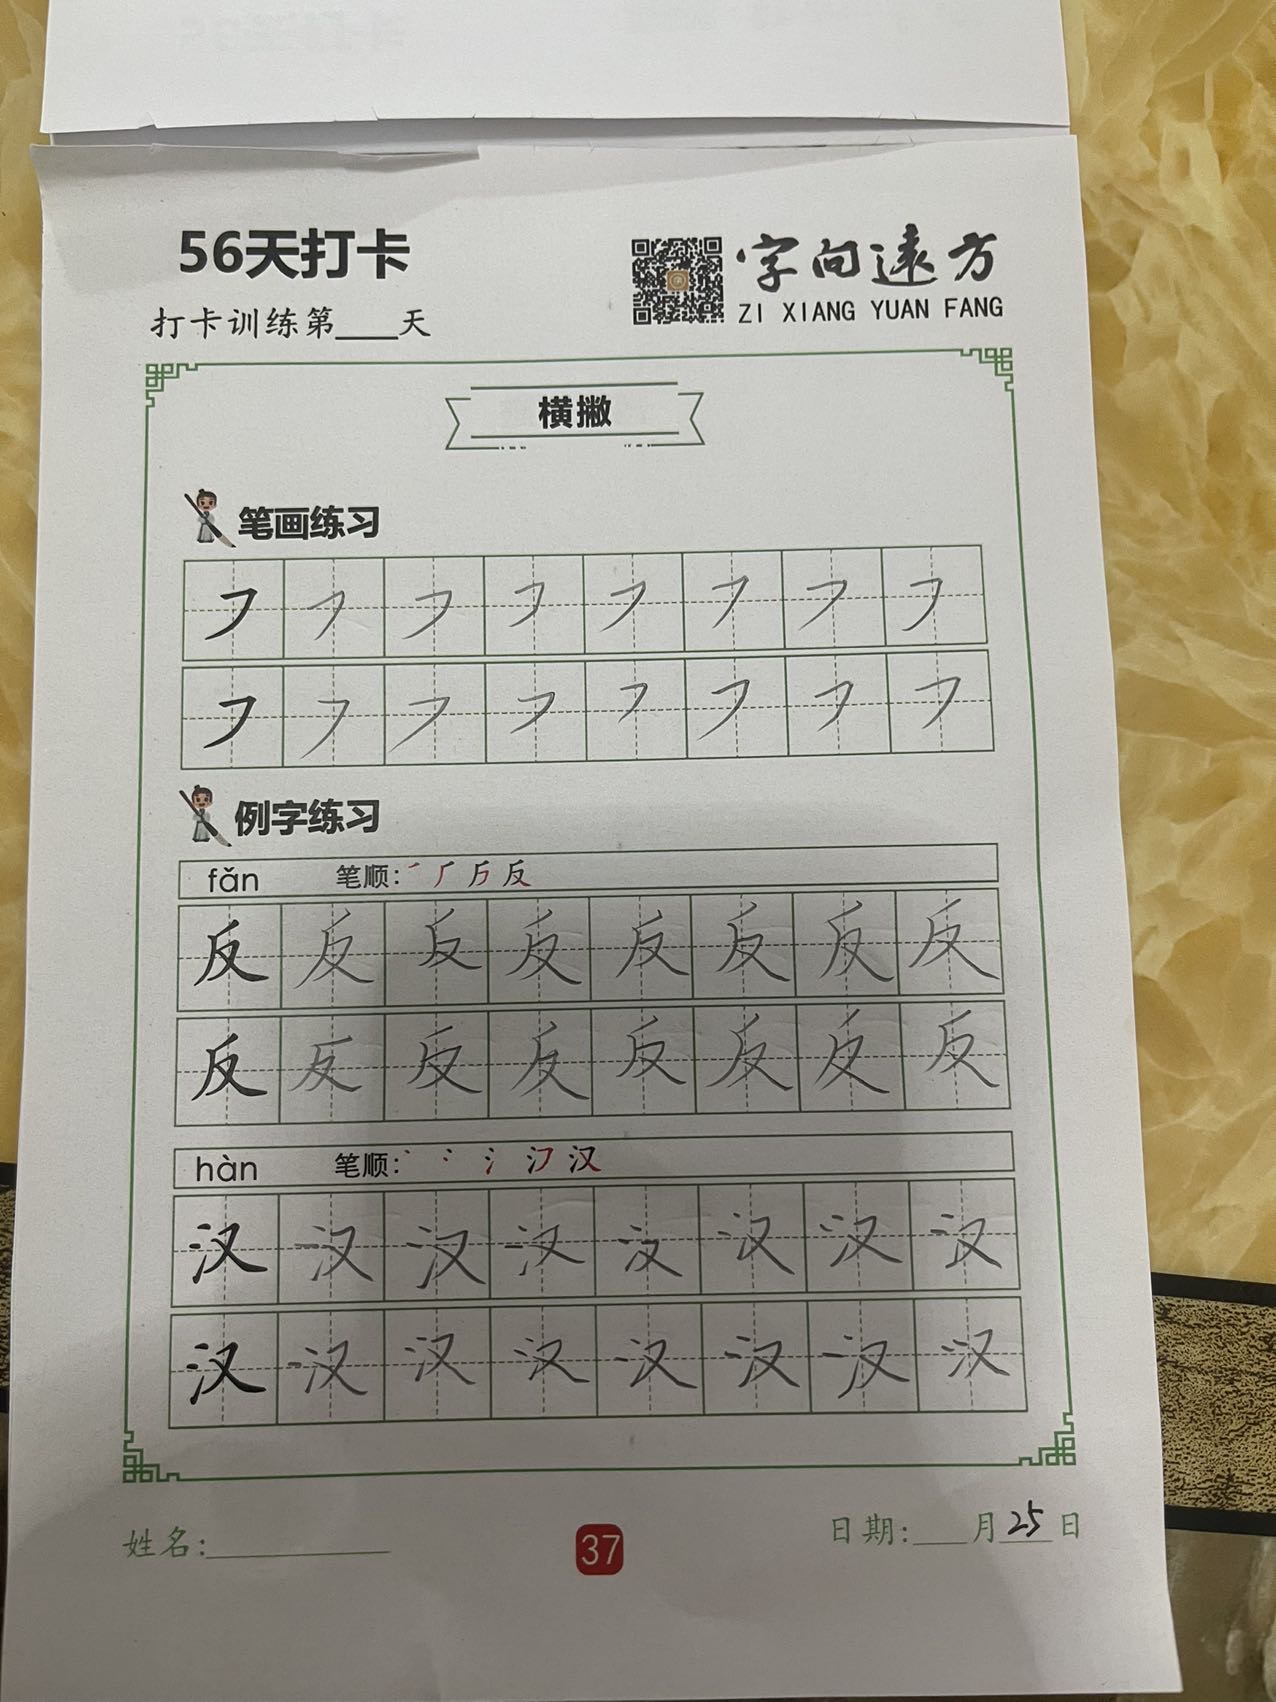 56天打卡
打卡训练第___天
字向遠方
ZI XIANG YUAN FANG
横撇
笔画练习
㇇ ㇇ ㇇ ㇇ ㇇ ㇇ ㇇ ㇇
㇇ ㇇ ㇇ ㇇ ㇇ ㇇ ㇇ ㇇
例字练习
fǎn 笔顺: 反
反 反 反 反 反 反 反 反
反 反 反 反 反 反 反 反
hàn 笔顺: 汉
汉 汉 汉 汉 汉 汉 汉 汉
汉 汉 汉 汉 汉 汉 汉 汉
姓名:__________ 37 日期:___月25日